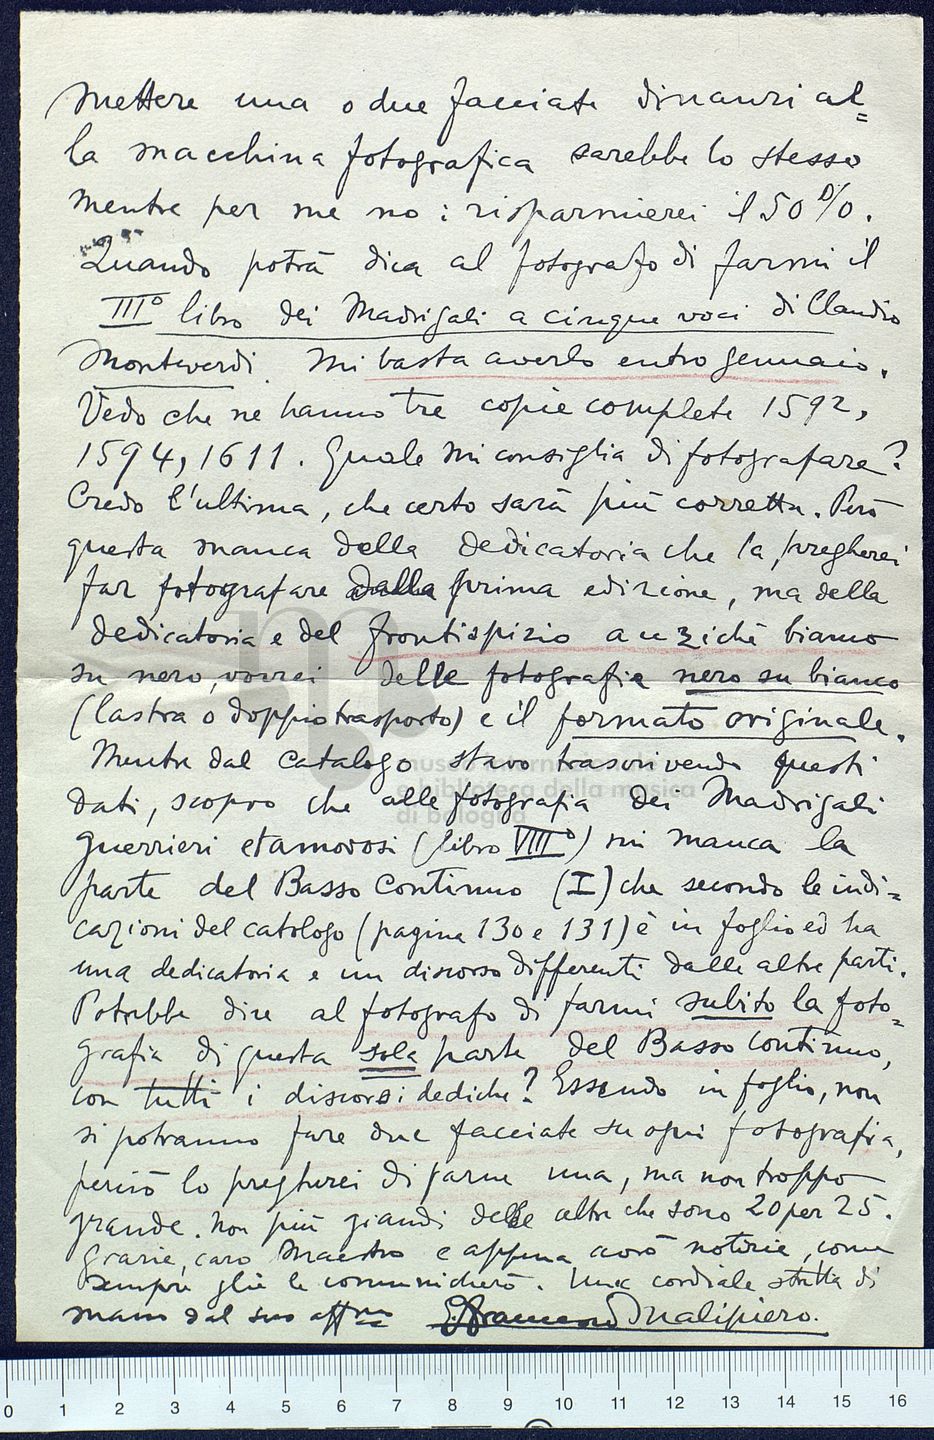 mettere una o due facciate dinanzi al=
la macchina fotografica sarebbe lo stesso
mentre per me no: risparmierei il 50%.
Quando potrà dica al fotografo di farmi il
III° libro dei Madrigali a cinque voci di Claudio
Monteverdi. Mi basta averlo entro gennaio.
Vedo che ne hanno tre copie complete 1592,
1594, 1611. Quale mi consiglia di fotografare?
Credo l'ultima, che certo sarà più corretta. Però
questa manca della dedicatoria che la pregherei
far fotografare dalla prima edizione, ma della
dedicatoria e del frontispizio anzichè bianco
su nero, vorrei delle fotografie nero su bianco
(lastra o doppio trasporto) e il formato originale.
Mentre dal catalogo stavo trascrivendo questi
dati, scopro che alle fotografia dei Madrigali
guerrieri et amorosi (libro VIII°) mi manca la
parte del Basso continuo (I) che secondo le indi=
cazioni del catologo (pagine 130 e 131) è in foglio ed ha
una dedicatoria e un discorso differenti dalle altre parti.
Potrebbe dire al fotografo di farmi subito la foto=
grafia di questa sola parte del Basso continuo,
con tutti i discorsi dediche? Essendo in foglio, non
si potranno fare due facciate su ogni fotografia,
perciò lo pregherei di farne una, ma non troppo
grande. Non più grandi delle altre che sono 20 per 25.
Grazie, caro Maestro e appena avrò notizie, come
sempre glie le comunicherò. Una cordiale stretta di
mano dal suo affmo G. Francesco Malipiero.
museo internazionale
e biblioteca della musica
di bologna
0 1 2 3 4 5 6 7 8 9 10 11 12 13 14 15 16